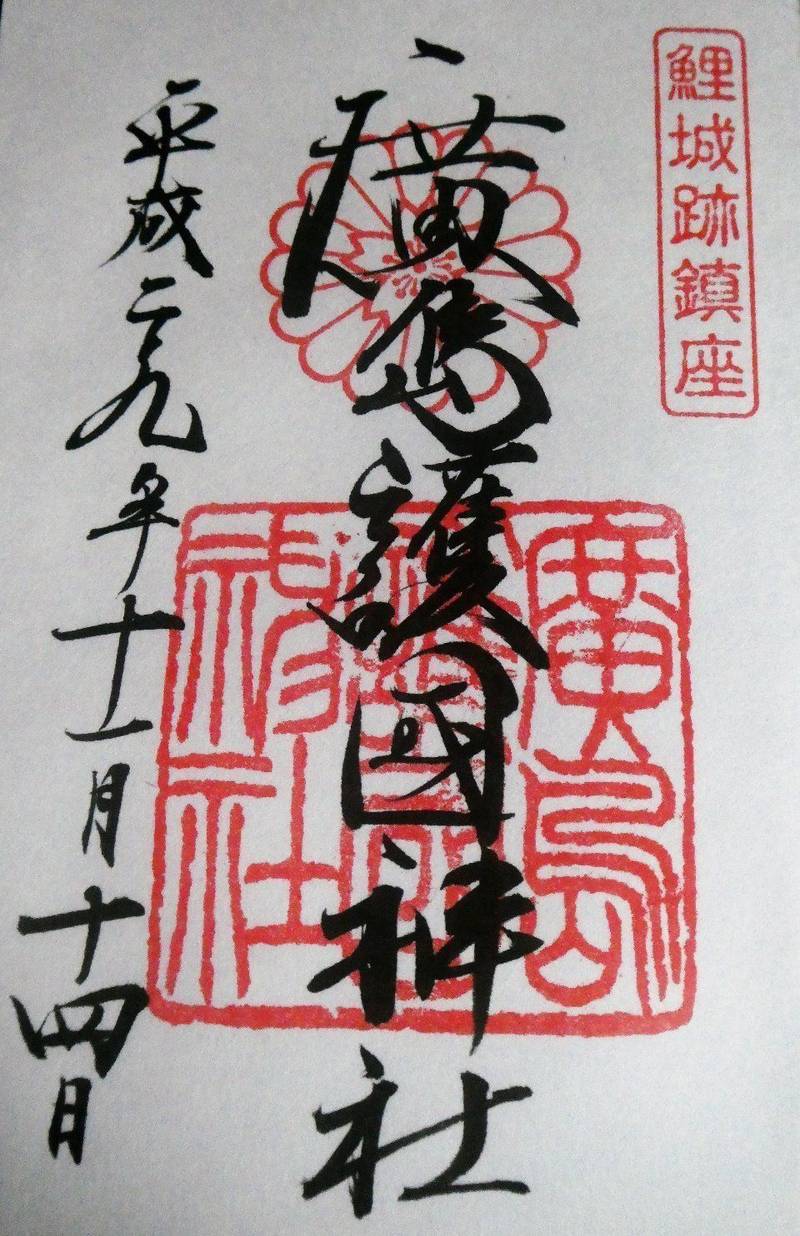 鯉城跡鎮座
廣島護國神社
廣島護國神社
平成二九年十一月十四日